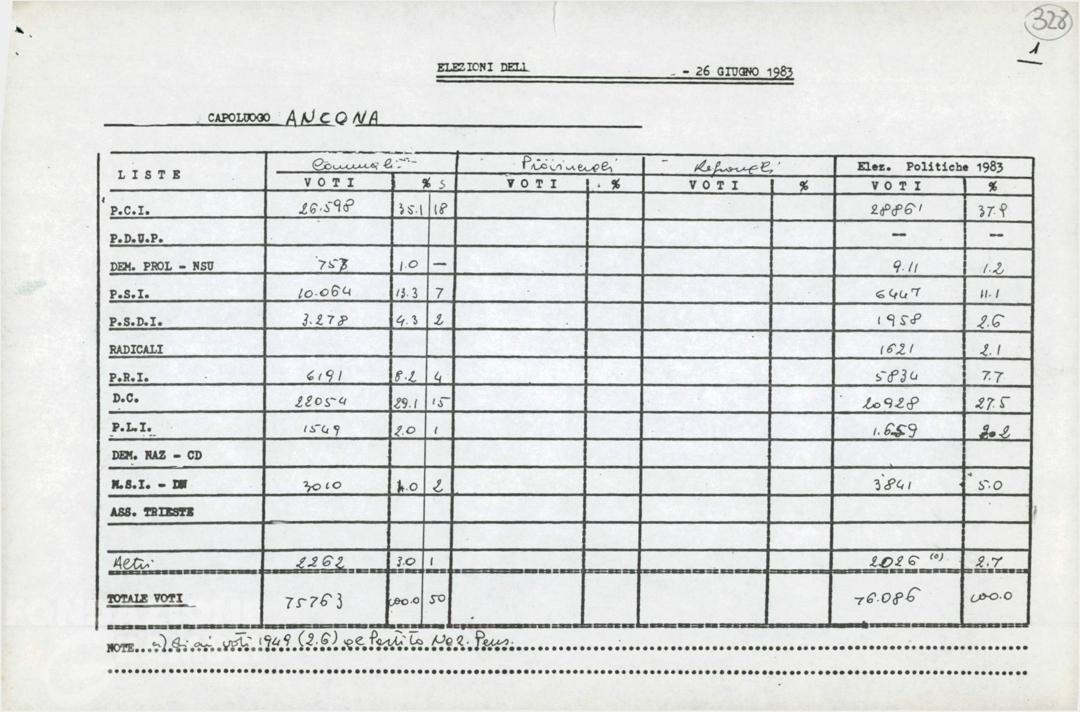 328
1
ELEZIONI DELL - 26 GIUGNO 1983
CAPOLUOGO ANCONA
LISTE Comunali Provinciali Regionali Elez. Politiche 1983
VOTI % S VOTI % VOTI % VOTI %
P.C.I. 26.598 35.1 18 28861 37.9
P.D.U.P. -- --
DEM. PROL - NSU 757 1.0 — 9.11 1.2
P.S.I. 10.064 13.3 7 6447 11.1
P.S.D.I. 3.278 4.3 2 1958 2.6
RADICALI 1621 2.1
P.R.I. 6191 8.2 4 5834 7.7
D.C. 22054 29.1 15 20928 27.5
P.L.I. 1549 2.0 1 1.659 2.2
DEM. NAZ - CD
M.S.I. - DN 3010 4.0 2 3841 5.0
ASS. TRIESTE
Altri 2262 3.0 1 2026 (a) 2.7
TOTALE VOTI 75763 100.0 50 76.086 100.0
NOTE... a) di cui voti 1949 (2.6) al Partito Naz. Pens.